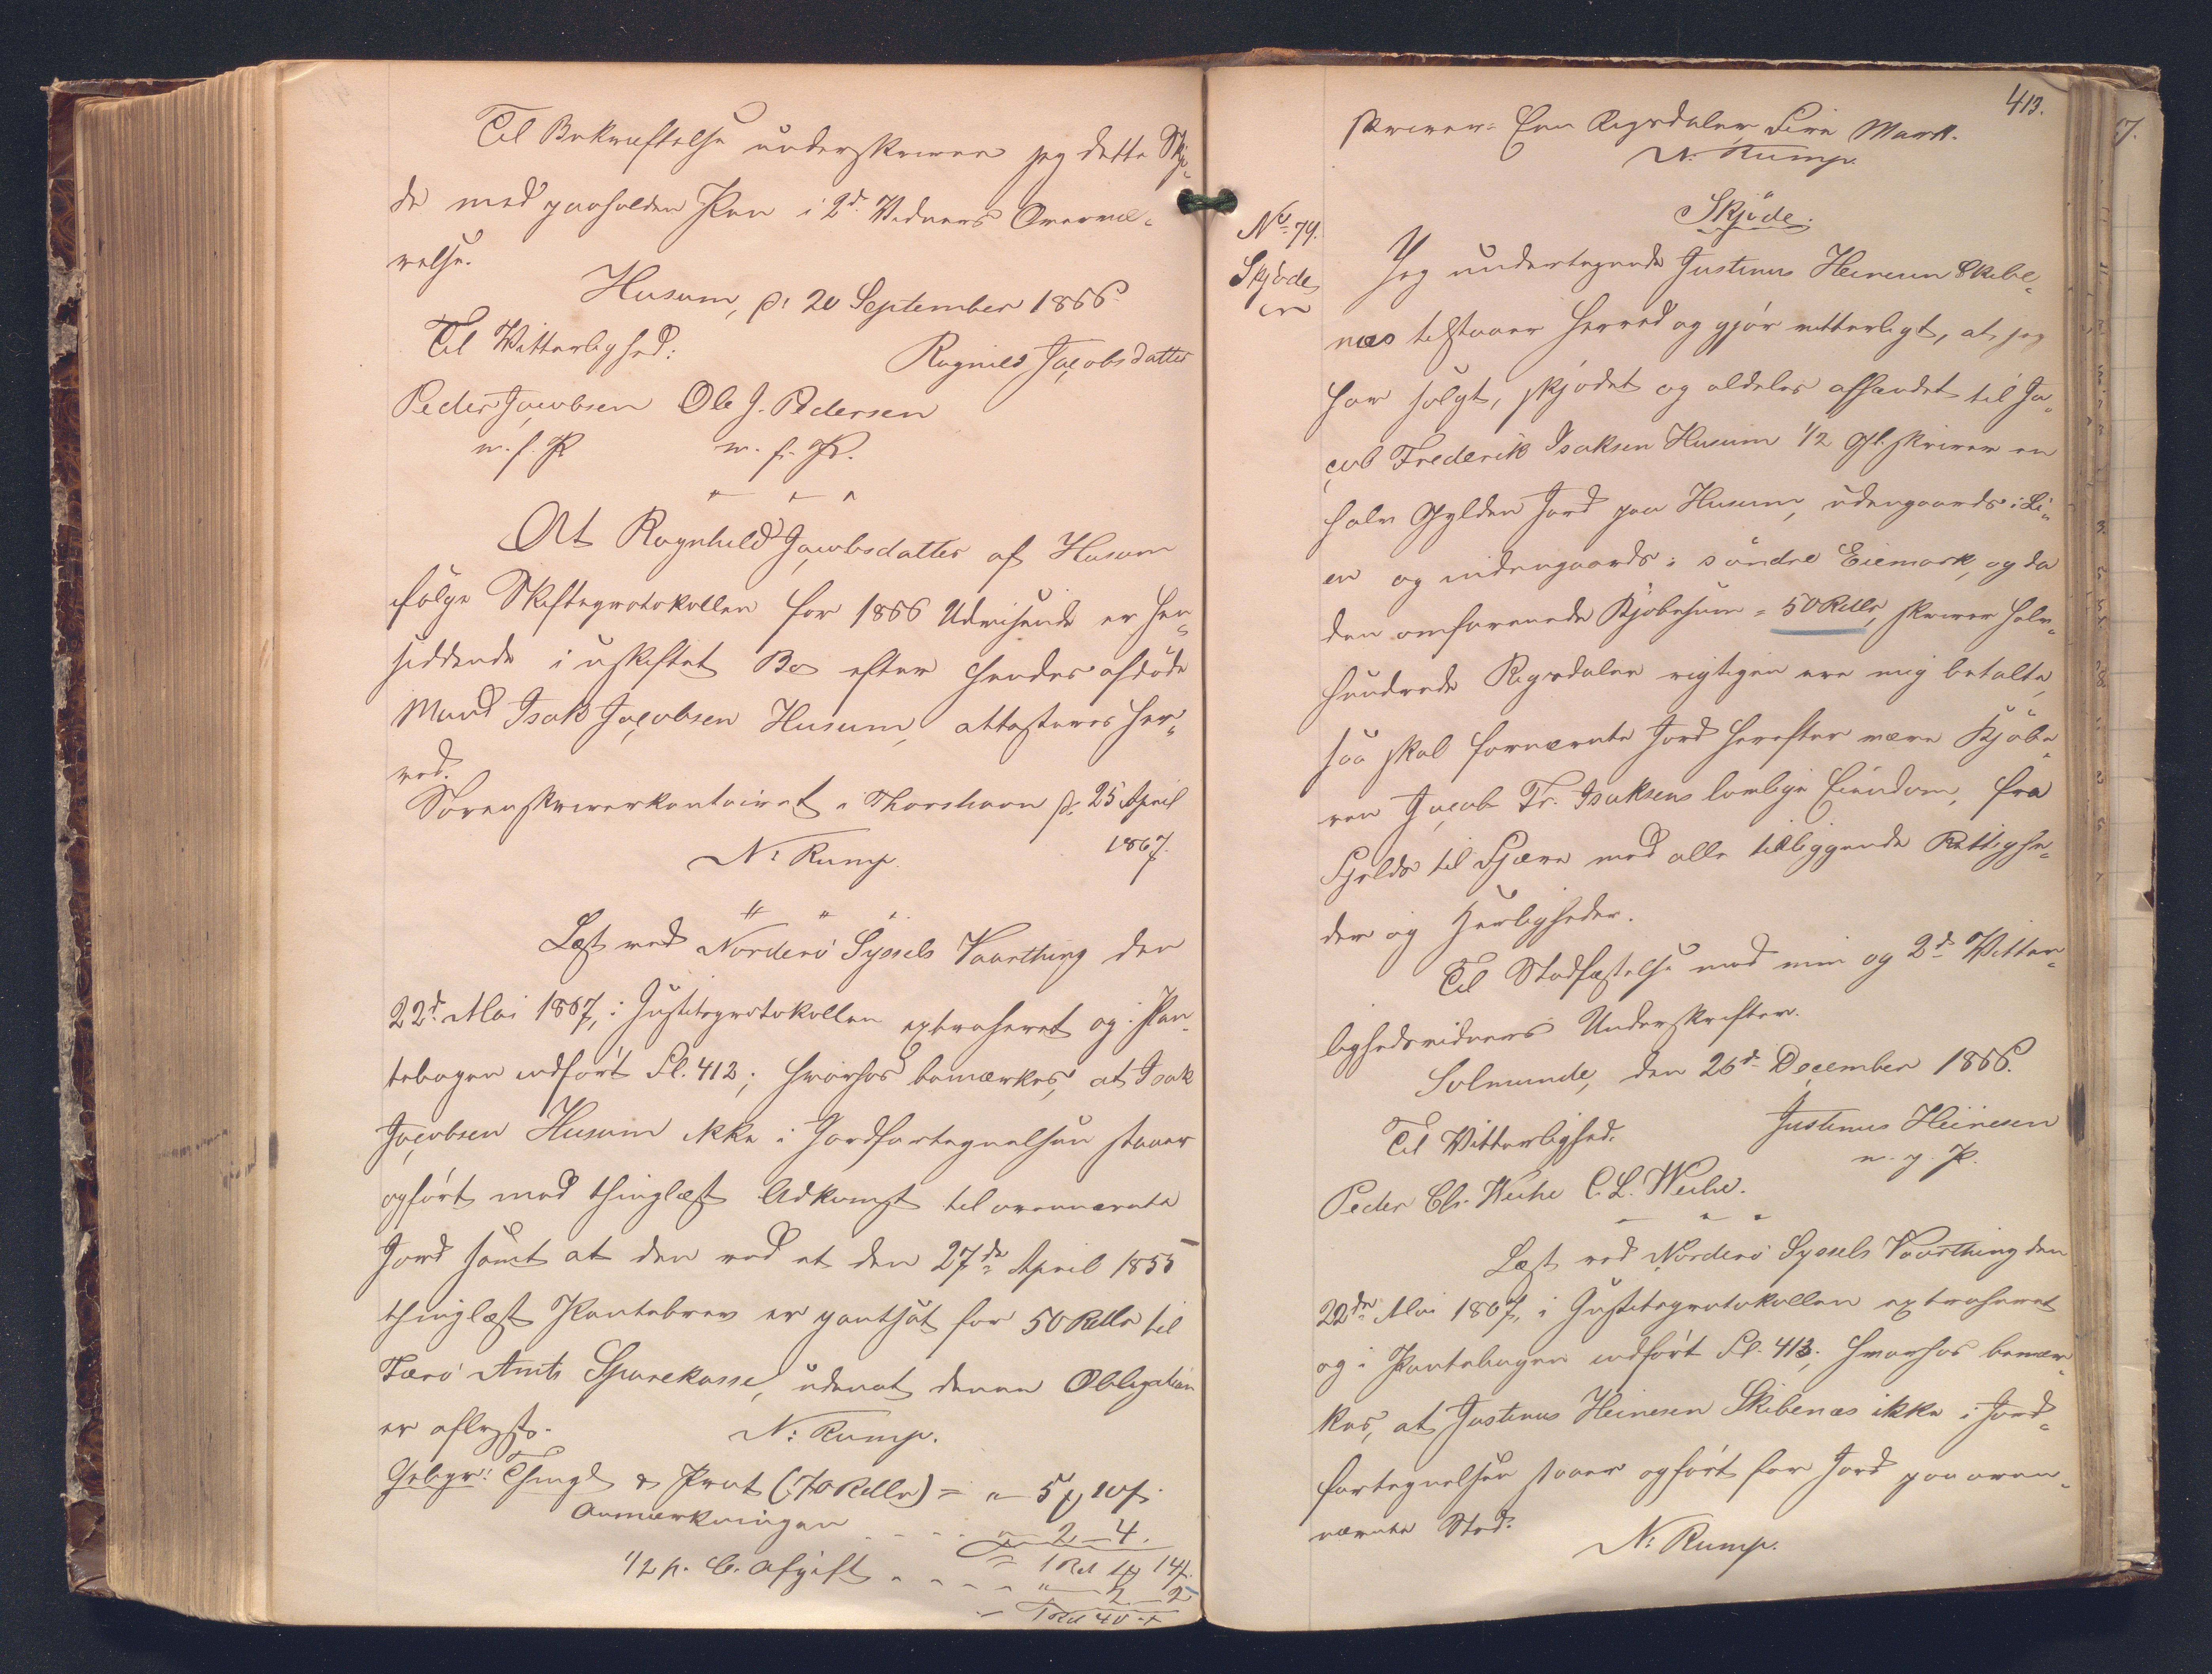 Til Bekræftelse underskriver jeg dette Skjø-
de med paaholden Pen i 2de Vidners Overvæ-
relse.
Husum, d: 20 September 1866
Til Vitterlighed:
Ragnild Jacobsdatter
Peder Jacobsen Ole J. Pedersen
m. f. P. m. f. P.
At Ragnhild Jacobsdatter af Husum
ifølge Skifteprotokollen for 1866 Udvisende er hen-
siddende i uskiftet Bo efter hendes afdøde
Mand Isak Jacobsen Husum, attesteres her-
ved.
Sorenskriverkontoiret i Thorshavn d: 25 April
1867.
N: Rump.
Læst ved Norderø Syssels Vaarthing den
22d. Mai 1867, i Justitsprotokollen extraheret og i Pan-
tebogen indført Fl. 412; hvorhos bemærkes, at Isak
Jacobsen Husum ikke i Jordfortegnelsen staaer
opført med thinglæst Adkomst til ovennævnte
Jord samt at den ved et den 27de April 1855
thinglæst Pantebrev er pantsat for 50 Rdlr til
Færø Amts Sparekasse, udenat denne Obligation
er aflyst.
N: Rump.
Gebyr: Thingl & Prot (70 Rdlr) = " 5 " 10
Anmærkningen " 2 - 4.
= 1 Rd 1 14
1/2 p. C. Afgift " 2 - 2
1 Rd 4
413.
skriver: Een Rigsdaler Fire Mark.
N: Rump.
Skjøde.
No 79.
Skjøde
Jeg undertegnede Justinus Heinesen Skibe-
næs tilstaaer herved og gjør vitterligt, at jeg
har solgt, skjødet og aldeles afhændet til Ja-
cob Frederik Isaksen Husum 1/2 Gl. skriver en
halv Gylden Jord paa Husum, udengaards i Li-
en og indengaards i søndre Eiemark, og da
den omforenede Kjøbesum = 50 Rdlr, skriver halv-
hundrede Rigsdaler rigtigen ere mig betalte,
saa skal fornævnte Jord herefter være Kjøbe-
ren Jacob Fr. Isaksens lovlige Eiendom, fra
Fjeld til Fjære med alle tilliggende Rettighe-
der og Herligheder.
Til Stadfæstelse med min og 2de Vitter-
lighedsvidners Underskrifter.
Solmunde, den 26d December 1866.
Til Vitterlighed.
Justinus Heinesen
m. p. P.
Peder Chr. Weihe C. L. Weihe.
Læst ved Norderø Syssels Vaarthing den
22de Mai 1867, i Justitsprotokollen extraheret
og i Pantebogen indført Fl. 413; hvorhos bemær-
kes, at Justinus Heinesen Skibenæs ikke i Jord-
fortegnelsen staaer opført for Jord paa oven-
nævnte Sted.
N: Rump.